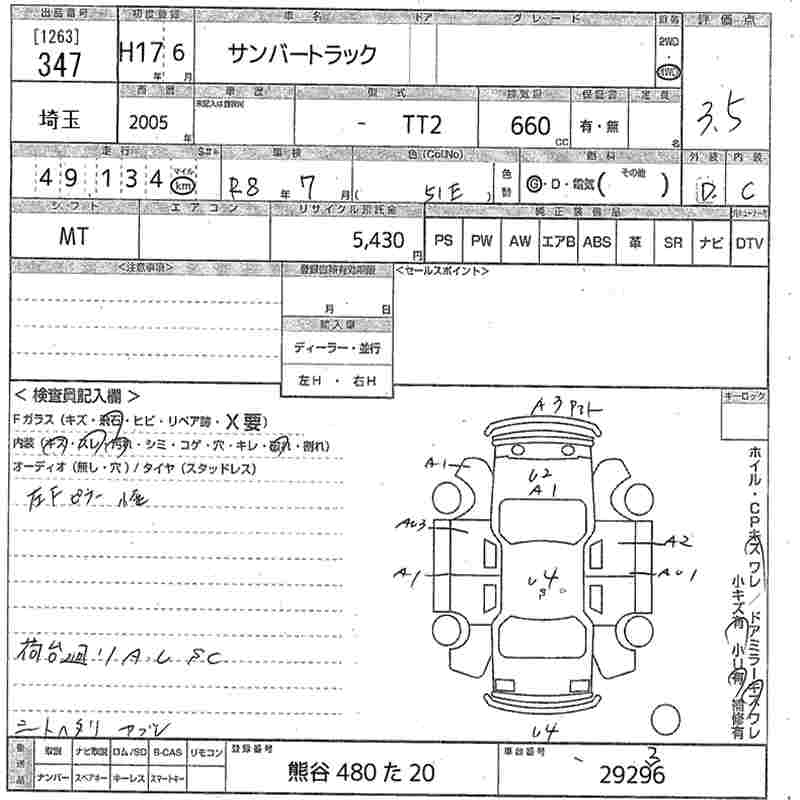 出品番号 初度登録 車名 ドア グレード 駆動 評価点
[1263]
347
H17 6
年 月
サンバートラック
2WD
・
4WD
3.5
埼玉
西暦 車歴 型式 排気量 保証書 定員
2005 年
未記入は自家用
- TT2
660 cc
有・無
名
走行 車検 色(Col.No) 燃料 外装 内装
49,134 マイル km
R8 年 7 月
( 51E )
色替
G・D・電気( その他 )
D C
シフト エアコン リサイクル預託金 純正装備品
MT
5,430 円
PS PW AW エアB ABS 革 SR ナビ DTV
<注意事項>
登録自検有効期限
月 日
輸入車
ディーラー・並行
左H ・ 右H
<セールスポイント>
< 検査員記入欄 >
Fガラス (キズ・飛石・ヒビ・リペア跡・X要)
内装 (キズ・スレ・汚れ・シミ・コゲ・穴・キレ・破れ・割れ)
オーディオ (無し・穴) / タイヤ (スタッドレス)
左Fピラー
荷台 リ A U S C
シートヘタリ
キーロック
A3
A1
U2
A1
AU3
A2
A1
U4
AU1
U4
ホイル・CPキズ ワレ/ドアミラーキズワレ
小キズ有 小U有 補修有
後送品
取説 ナビ取説 ロム/SD B-CAS リモコン
ナンバー スペアキー キーレス スマートキー
登録番号
熊谷 480 た 20
車台番号
3
29296